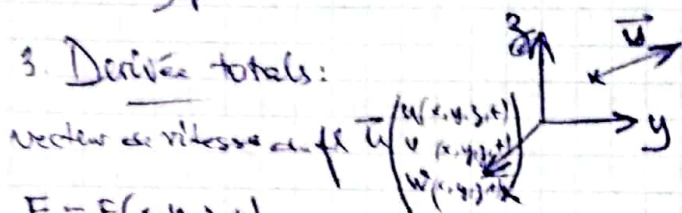 3. Derivée totals:
z
u⃗
vecteur de vitesse du fl u⃗ (u(x,y,z,t)
v (x,y,z,t)
w(x,y,z,t))
x
y
F = F(x, y, z, t)